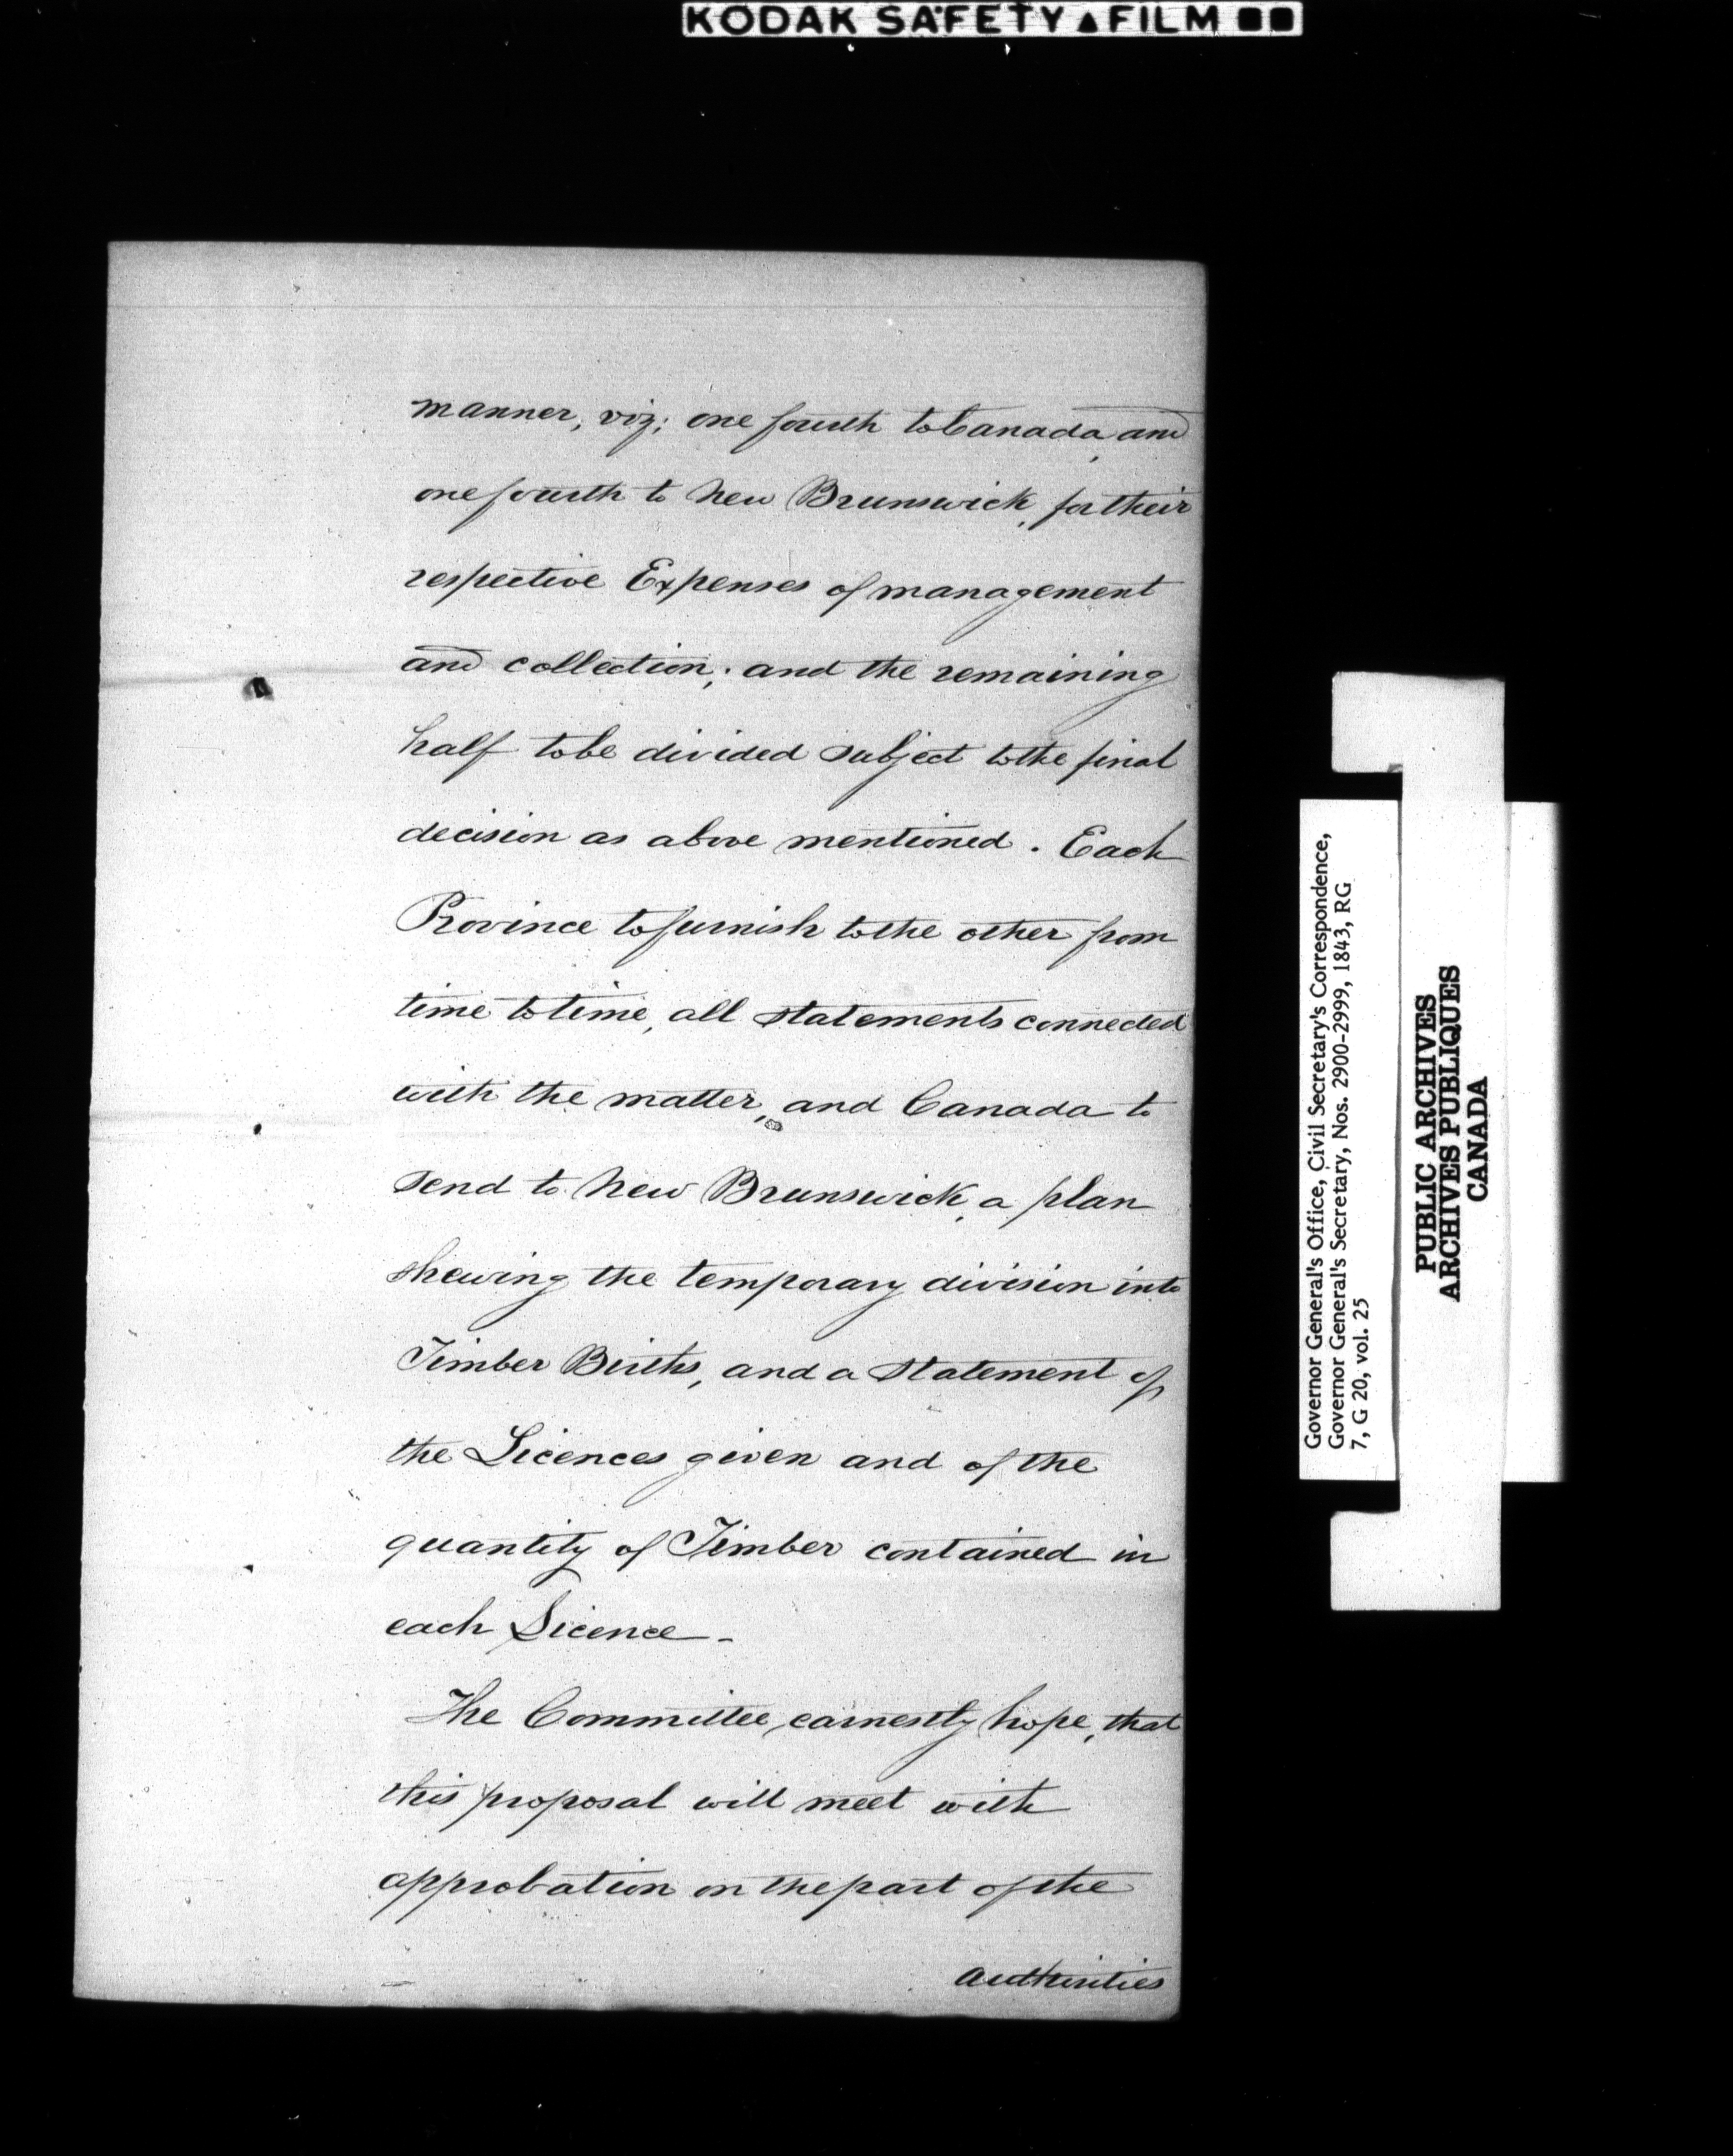 KODAK SAFETY ▲ FILM ■■
manner, viz; one fourth to Canada, and
one fourth to New Brunswick, for their
respective Expenses of management
and collection; and the remaining
half to be divided subject to the final
decision as above mentioned. Each
Province to furnish to the other from
time to time, all statements connected
with the matter, and Canada to
send to New Brunswick, a plan
shewing the temporary division into
Timber Births, and a statement of
the Licences given and of the
quantity of Timber contained in
each Licence -
The Committee earnestly hope, that
this proposal will meet with
approbation on the part of the
authorities
Governor General's Office, Civil Secretary's Correspondence,
Governor General's Secretary, Nos. 2900-2999, 1843, RG
7, G 20, vol. 25
PUBLIC ARCHIVES
ARCHIVES PUBLIQUES
CANADA